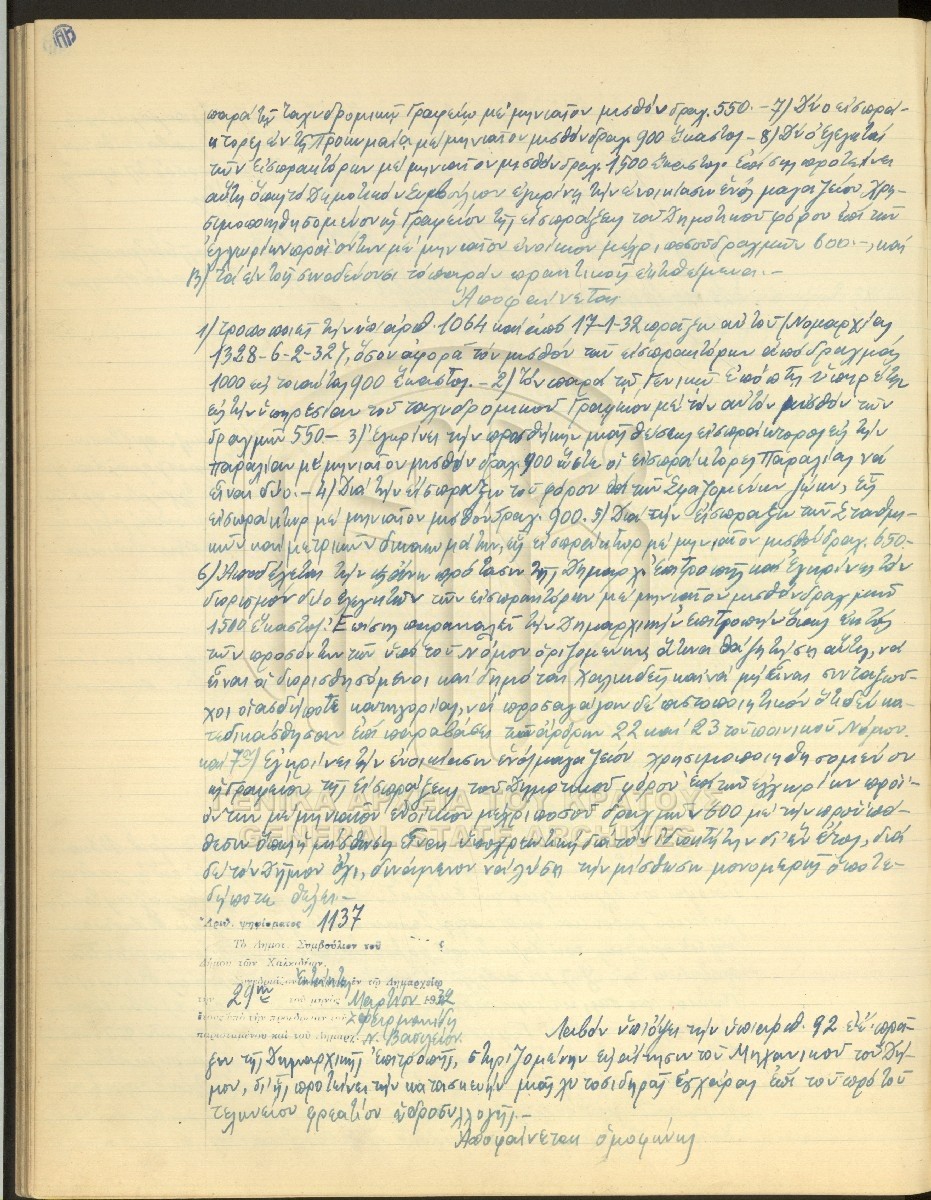 παρά τῷ Ταχυδρομικῷ Γραφείῳ μέ μηνιαῖον μισθόν δραχ. 550.- 7) Δύο εἰσπρά-
κτορες ἐν τῇ Προκυμαίᾳ μέ μηνιαῖον μισθόν δραχ. 900 ἕκαστος - 8) Δύο ἐλεγκταί
τῶν εἰσπρακτόρων μέ μηνιαῖον μισθόν δραχ. 1500 ἕκαστος. Ἐπίσης προτείνει
αὕτη ὅπως τό Δημοτικόν Συμβούλιον ἐγκρίνῃ τήν ἐνοικίασιν ἑνός μαγαζείου χρη-
σιμοποιηθησομένου ὡς Γραφεῖον τῆς εἰσπράξεως τοῦ Δημοτικοῦ φόρου ἐπί τῶν
ἐγχωρίων προϊόντων μέ μηνιαῖον ἐνοίκιον μέχρι ποσοῦ δραχμῶν 600.-, καί
β) τά ἐν τοῖς συνοδεύουσι τό παρόν πρακτικοῖς ἐκτιθέμενα.-
Ἀποφαίνεται
1) τροποποιεῖ τήν ὑπ' ἀριθ. 1064 καί ἀπό 17-1-32 πρᾶξιν αὐτοῦ (Νομαρχίας
1328-6-2-32), ὅσον ἀφορᾷ τόν μισθόν τῶν εἰσπρακτόρων ἀπό δραχμάς
1000 εἰς τοιαύτας 900 ἕκαστος.- 2) Τόν παρά τῷ Γενικῷ ἐπόπτῃ ὑπηρέτην
εἰς τήν ὑπηρεσίαν τοῦ ταχυδρομικοῦ Γραφείου μέ τόν αὐτόν μισθόν τῶν
δραχμῶν 550- 3) Ἐγκρίνει τήν προσθήκην μιᾶς θέσεως εἰσπράκτορος εἰς τήν
παραλίαν μέ μηνιαῖον μισθόν δραχ. 900 ὥστε οἱ εἰσπράκτορες Παραλίας νά
εἶναι δύο.- 4) Διά τήν εἴσπραξιν τοῦ φόρου ἐπί τῶν σφαζομένων ζώων, εἷς
εἰσπράκτωρ μέ μηνιαῖον μισθόν δραχ. 900. 5) Διά τήν εἴσπραξιν τῶν Σταθμι-
κῶν καί μετρικῶν δικαιωμάτων, εἷς εἰσπράκτωρ μέ μηνιαῖον μισθόν δραχ. 650.-
6) Ἀποδέχεται τήν πρότασιν τῆς Δημαρχ. Ἐπιτροπῆς καί ἐγκρίνει τόν
διορισμόν δύο ἐλεγκτῶν τῶν εἰσπρακτόρων μέ μηνιαῖον μισθόν δραχμῶν
1500 ἕκαστος. Ἐπίσης παρακαλεῖ τήν Δημαρχιακήν ἐπιτροπήν ὅπως ἐκτός
τῶν προσόντων τῶν ὑπό τοῦ Νόμου ὁριζομένων ἅτινα θά ζητήσῃ αὕτη, νά
εἶναι οἱ διορισθησόμενοι καί δημόται Χαλκιδεῖς καί νά μή εἶναι συνταξιοῦ-
χοι οἱασδήποτε κατηγορίας, νά προσαγάγουν δέ πιστοποιητικόν ὅτι δέν κα-
τεδικάσθησαν ἐπί παραβάσει τῶν ἄρθρων 22 καί 23 τοῦ ποινικοῦ Νόμου.
καί 7ον) Ἐγκρίνει τήν ἐνοικίασιν ἑνός μαγαζείου χρησιμοποιηθησομένου
ὡς Γραφείου τῆς εἰσπράξεως τοῦ Δημοτικοῦ φόρου ἐπί τῶν ἐγχωρίων προϊ-
όντων μέ μηνιαῖον ἐνοίκιον μέχρι ποσοῦ δραχμῶν 600 μέ τήν προϋπό-
θεσιν ὅπως ἡ μίσθωσις εἶναι ὑποχρεωτική διά τόν ἰδιοκτήτην δι' ἕν ἔτος, διά
δέ τόν Δῆμον ὄχι, δυνάμενον νά λύσῃ τήν μίσθωσιν μονομερῶς ὁποτε-
δήποτε θέλει.-
ΓΕΝΙΚΑ ΑΡΧΕΙΑ ΤΟΥ ΚΡΑΤΟΥΣ
GENERAL STATE ARCHIVES
Ἀριθ. ψηφίσματος 1137
Τὸ Δημοτ. Συμβούλιον τοῦ
Δήμου τῶν Χαλκιδέων.
Συνεδριάζον ἐν τῷ Δημαρχείῳ
τὴν 29ην τοῦ μηνὸς Μαρτίου 1932
ἔτους ὑπὸ τὴν προεδρείαν τοῦ
παρισταμένου καὶ τοῦ Δημάρχ. Ν. Βασιλείου.
Λαβόν ὑπ' ὄψει τήν ὑπ' ἀριθ. 92 ἐ.ἔ. πρᾶ-
ξιν τῆς Δημαρχιακῆς ἐπιτροπῆς, στηριζομένην εἰς αἴτησιν τοῦ Μηχανικοῦ τοῦ Δή-
μου, δι' ἧς προτείνει τήν κατασκευήν μιᾶς χυτοσιδηρᾶς ἐσχάρας ἐπί τοῦ πρό τοῦ
τελωνείου φρεατίου ὑδροσυλλογῆς.-
Ἀποφαίνεται ὁμοφώνως